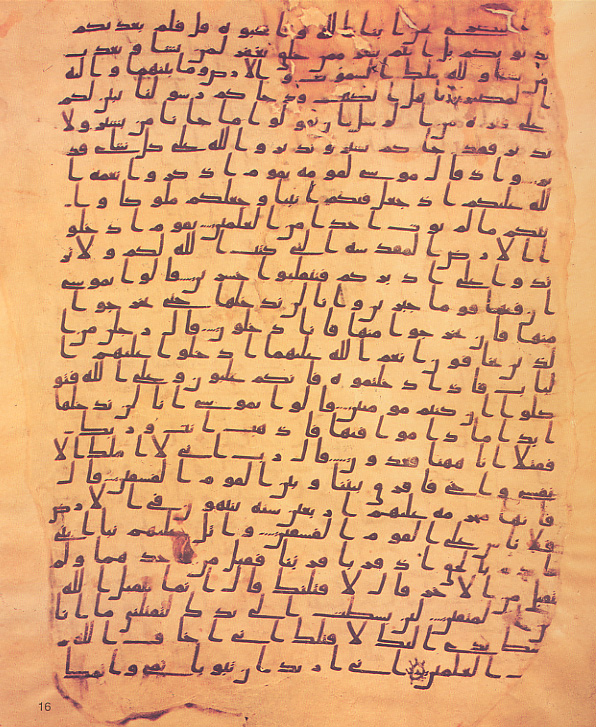 نحن ابنا الله واحبوه قل فلم يعذبكم
بذنوبكم بل انتم بشر ممن خلق يغفر لمن يشا ويعذب
من يشا ولله ملك السموت والارض وما بينهما واليه
ا لمصير ياهل الكتب قد جاكم رسولنا يبين لكم
على فتره من الرسل ان تقولوا ما جانا من بشير ولا
نذير فقد جاكم بشير ونذير والله على كل شاى قد
ير واذ قال موسى لقومه يقوم اذكروا نعمه ا
لله عليكم اذ جعل فيكم انبيا وجعلكم ملوكا وا
تيكم ما لم يوت احدا من العلمين يقوم ادخلو
ا الارض المقدسه التى كتب الله لكم ولا تر
تدوا على ادبركم فتنقلبوا خسرين قالوا يموسى
ان فيها قوما جبرين وانا لن ندخلها حتى يخرجوا
منها فان يخرجوا منها فانا دخلون قال رجلن من ا
لذين يخافون انعم الله عليهما ادخلوا عليهم ا
لباب فاذا دخلتموه فانكم غلبون وعلى الله فتو
كلوا ان كنتم مومنين قالوا يموسى انا لن ندخلها
ابدا ما داموا فيها فاذهب انت وربك
فقتلا انا ههنا قعدون قال رب انى لا املك الا
نفسى واخى فافرق بيننا وبين القوم الفسقين قال
فانها محرمه عليهم اربعين سنه يتيهون فى الارض
فلا تاس على القوم الفسقين واتل عليهم نبا ابنى
ادم بالحق اذ قربا قربنا فتقبل من احدهما ولم
يتقبل من الاخر قال لاقتلنك قال انما يتقبل الله
من المتقين لين بسطت الى يدك لتقتلنى ما انا
ببسط يدى اليك لاقتلك انى اخاف الله
رب العلمين انى اريد ان تبوا باثمى واثمك
16